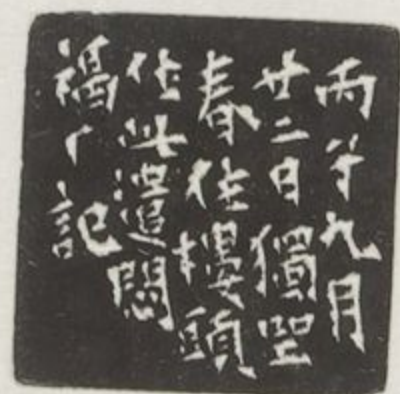 丙子九月
廿二日獨坐
春住樓頭
作此遣悶
福厂記